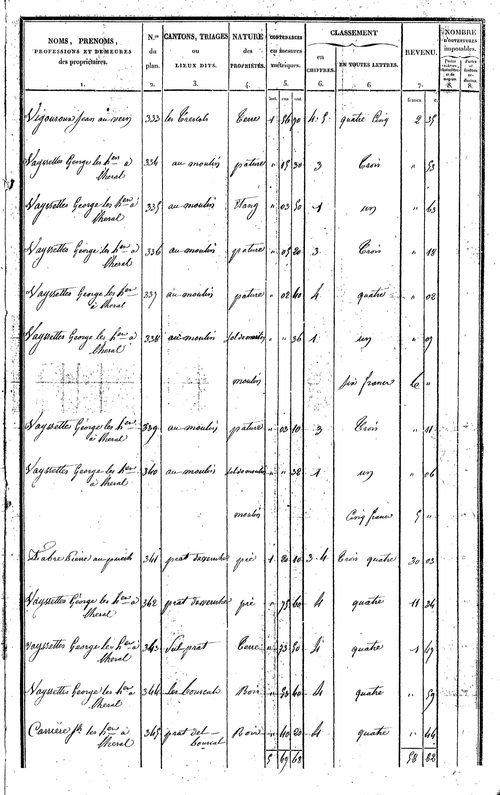 NOMS, PRENOMS, PROFESSIONS ET DEMEURES des propriétaires. 1. | N.os du plan. 2. | CANTONS, TRIAGES ou LIEUX DITS. 3. | NATURE des PROPRIÉTÉS. 4. | CONTENANCES en mesures métriques. 5. | CLASSEMENT en CHIFFRES. 6. | EN TOUTES LETTRES. 6 | REVENU. 7. | NOMBRE D'OUVERTURES imposables. 8. 8.
francs c.
Vigouroux Jean au vern 333 les Crestats Terre 1 56 90 4.5 quatre Cinq 2 35
Vayssettes George les hers à Cheral 334 au moulin pature " 15 30 3 Trois " 53
Vayssettes George les hers à Cheral 335 au moulin Etang " 03 50 1 un " 63
Vayssettes George les hers à Cheral 336 au moulin pature " 05 20 3 Trois " 18
Vayssettes George les hers à Cheral 337 au moulin pature " 02 60 4 quatre " 02
Vayssettes George les hers à Cheral 338 au moulin sol de moulin " " 36 1 un " 07
moulin six francs 6 "
Vayssettes George les hers à Cheral 339 au moulin pature " 03 10 3 Trois " 11
Vayssettes George les hers à Cheral 340 au moulin sol de moulin " " 32 1 un " 06
moulin Cinq francs 5 "
Fabre Pierre au puech 341 prat pré 1 20 10 3.4 Trois quatre 30 03
Vayssettes George les hers à Cheral 342 prat pré " 75 60 4 quatre 11 34
Vayssettes George les hers à Cheral 343 Sul prat Terre " 33 50 4 quatre 1 67
Vayssettes George les hers à Cheral 344 les bourcat Bois " 53 60 4 quatre " 59
Carrière les hers à Cheral 345 prat del bourcat Bois " 40 20 4 quatre " 44
5 69 68 58 82